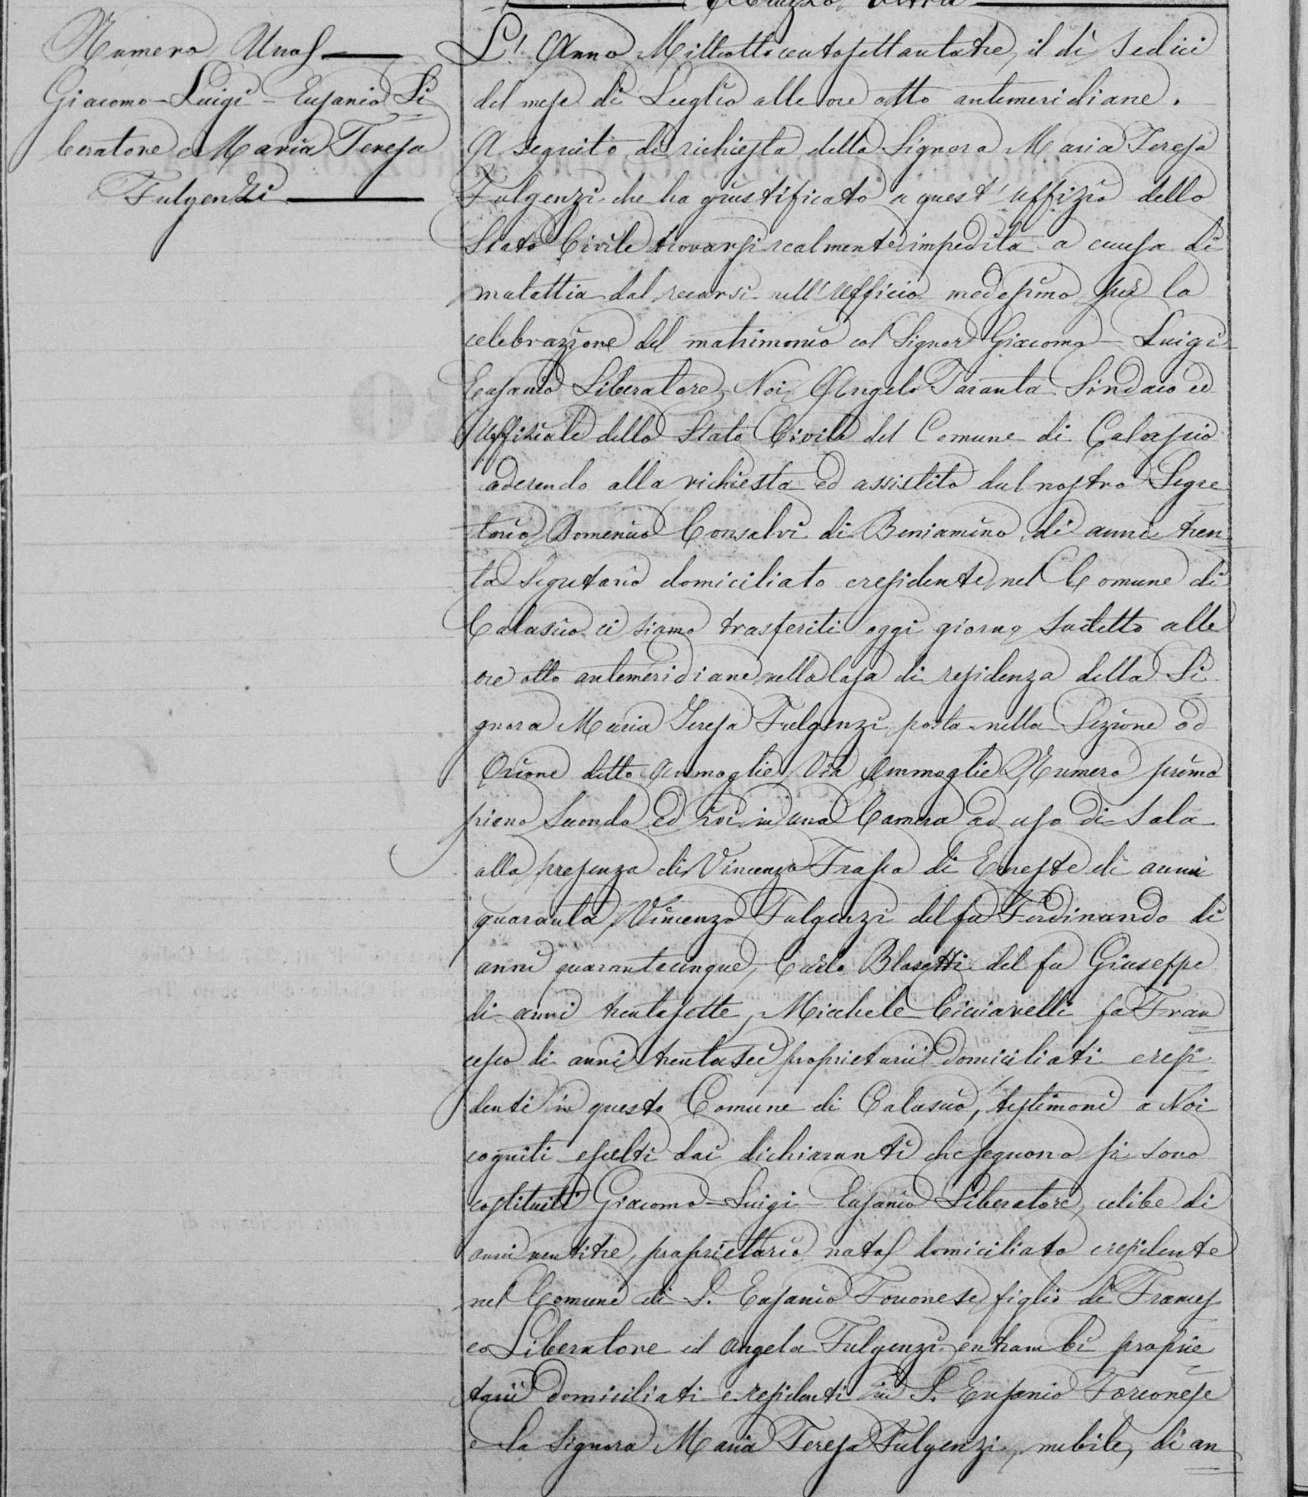 Numero Uno
Giacomo-Luigi-Eusanio Li
beratore e Maria Teresa
Fulgenzi
L'Anno Milleottocentosettantatre, il dì sedici
del mese di Luglio alle ore otto antemeridiane.
A seguito di richiesta della Signora Maria Teresa
Fulgenzi che ha giustificato a quest'uffizio dello
Stato Civile trovarsi realmente impedita a causa di
malattia dal recarsi nell'Officio medesimo per la
celebrazione del matrimonio col Signor Giacomo-Luigi-
Eusanio Liberatore, Noi Angelo Taranta Sindaco ed
Uffiziale dello Stato Civile del Comune di Calascio
aderendo alla richiesta ed assistito dal nostro Segre
tario Domenico Consalvi di Beniamino di anni tren
ta Segretario domiciliato e residente nel Comune di
Calascio ci siamo trasferiti oggi giorno sudetto alle
ore otto antemeridiane nella casa di residenza della Si
gnora Maria Teresa Fulgenzi posta nella Sezione od
Rione detto Ammoglie Via Ammoglie Numero primo
piano secondo ed ivi in una Camera ad uso di sala
alla presenza di Vincenzo Frasca di Oreste di anni
quaranta, Vincenzo Fulgenzi del fu Ferdinando di
anni quarantacinque, Carlo Blasetti del fu Giuseppe
di anni trentasette, Michele Cicciarelli fu Fran
cesco di anni trentasei proprietarii domiciliati e resi
denti in questo Comune di Calascio, testimoni a Noi
cogniti e scelti dai dichiaranti che seguono si sono
costituiti Giacomo-Luigi-Eusanio Liberatore, celibe di
anni ventitre, proprietario nato domiciliato e residente
nel Comune di S. Eusanio Forconese figlio di Frances
co Liberatore ed Angela Fulgenzi entrambi proprie
tarii domiciliati e residenti in S. Eusanio Forconese
e la Signora Maria Teresa Fulgenzi, nubile, di an